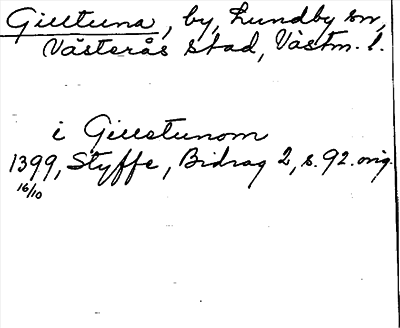 Gilltuna, by, Lundby sn,
Västerås stad, Västm. l.
i Gillstunom
1399, Styffe, Bidrag 2, s. 92. orig.
16/10